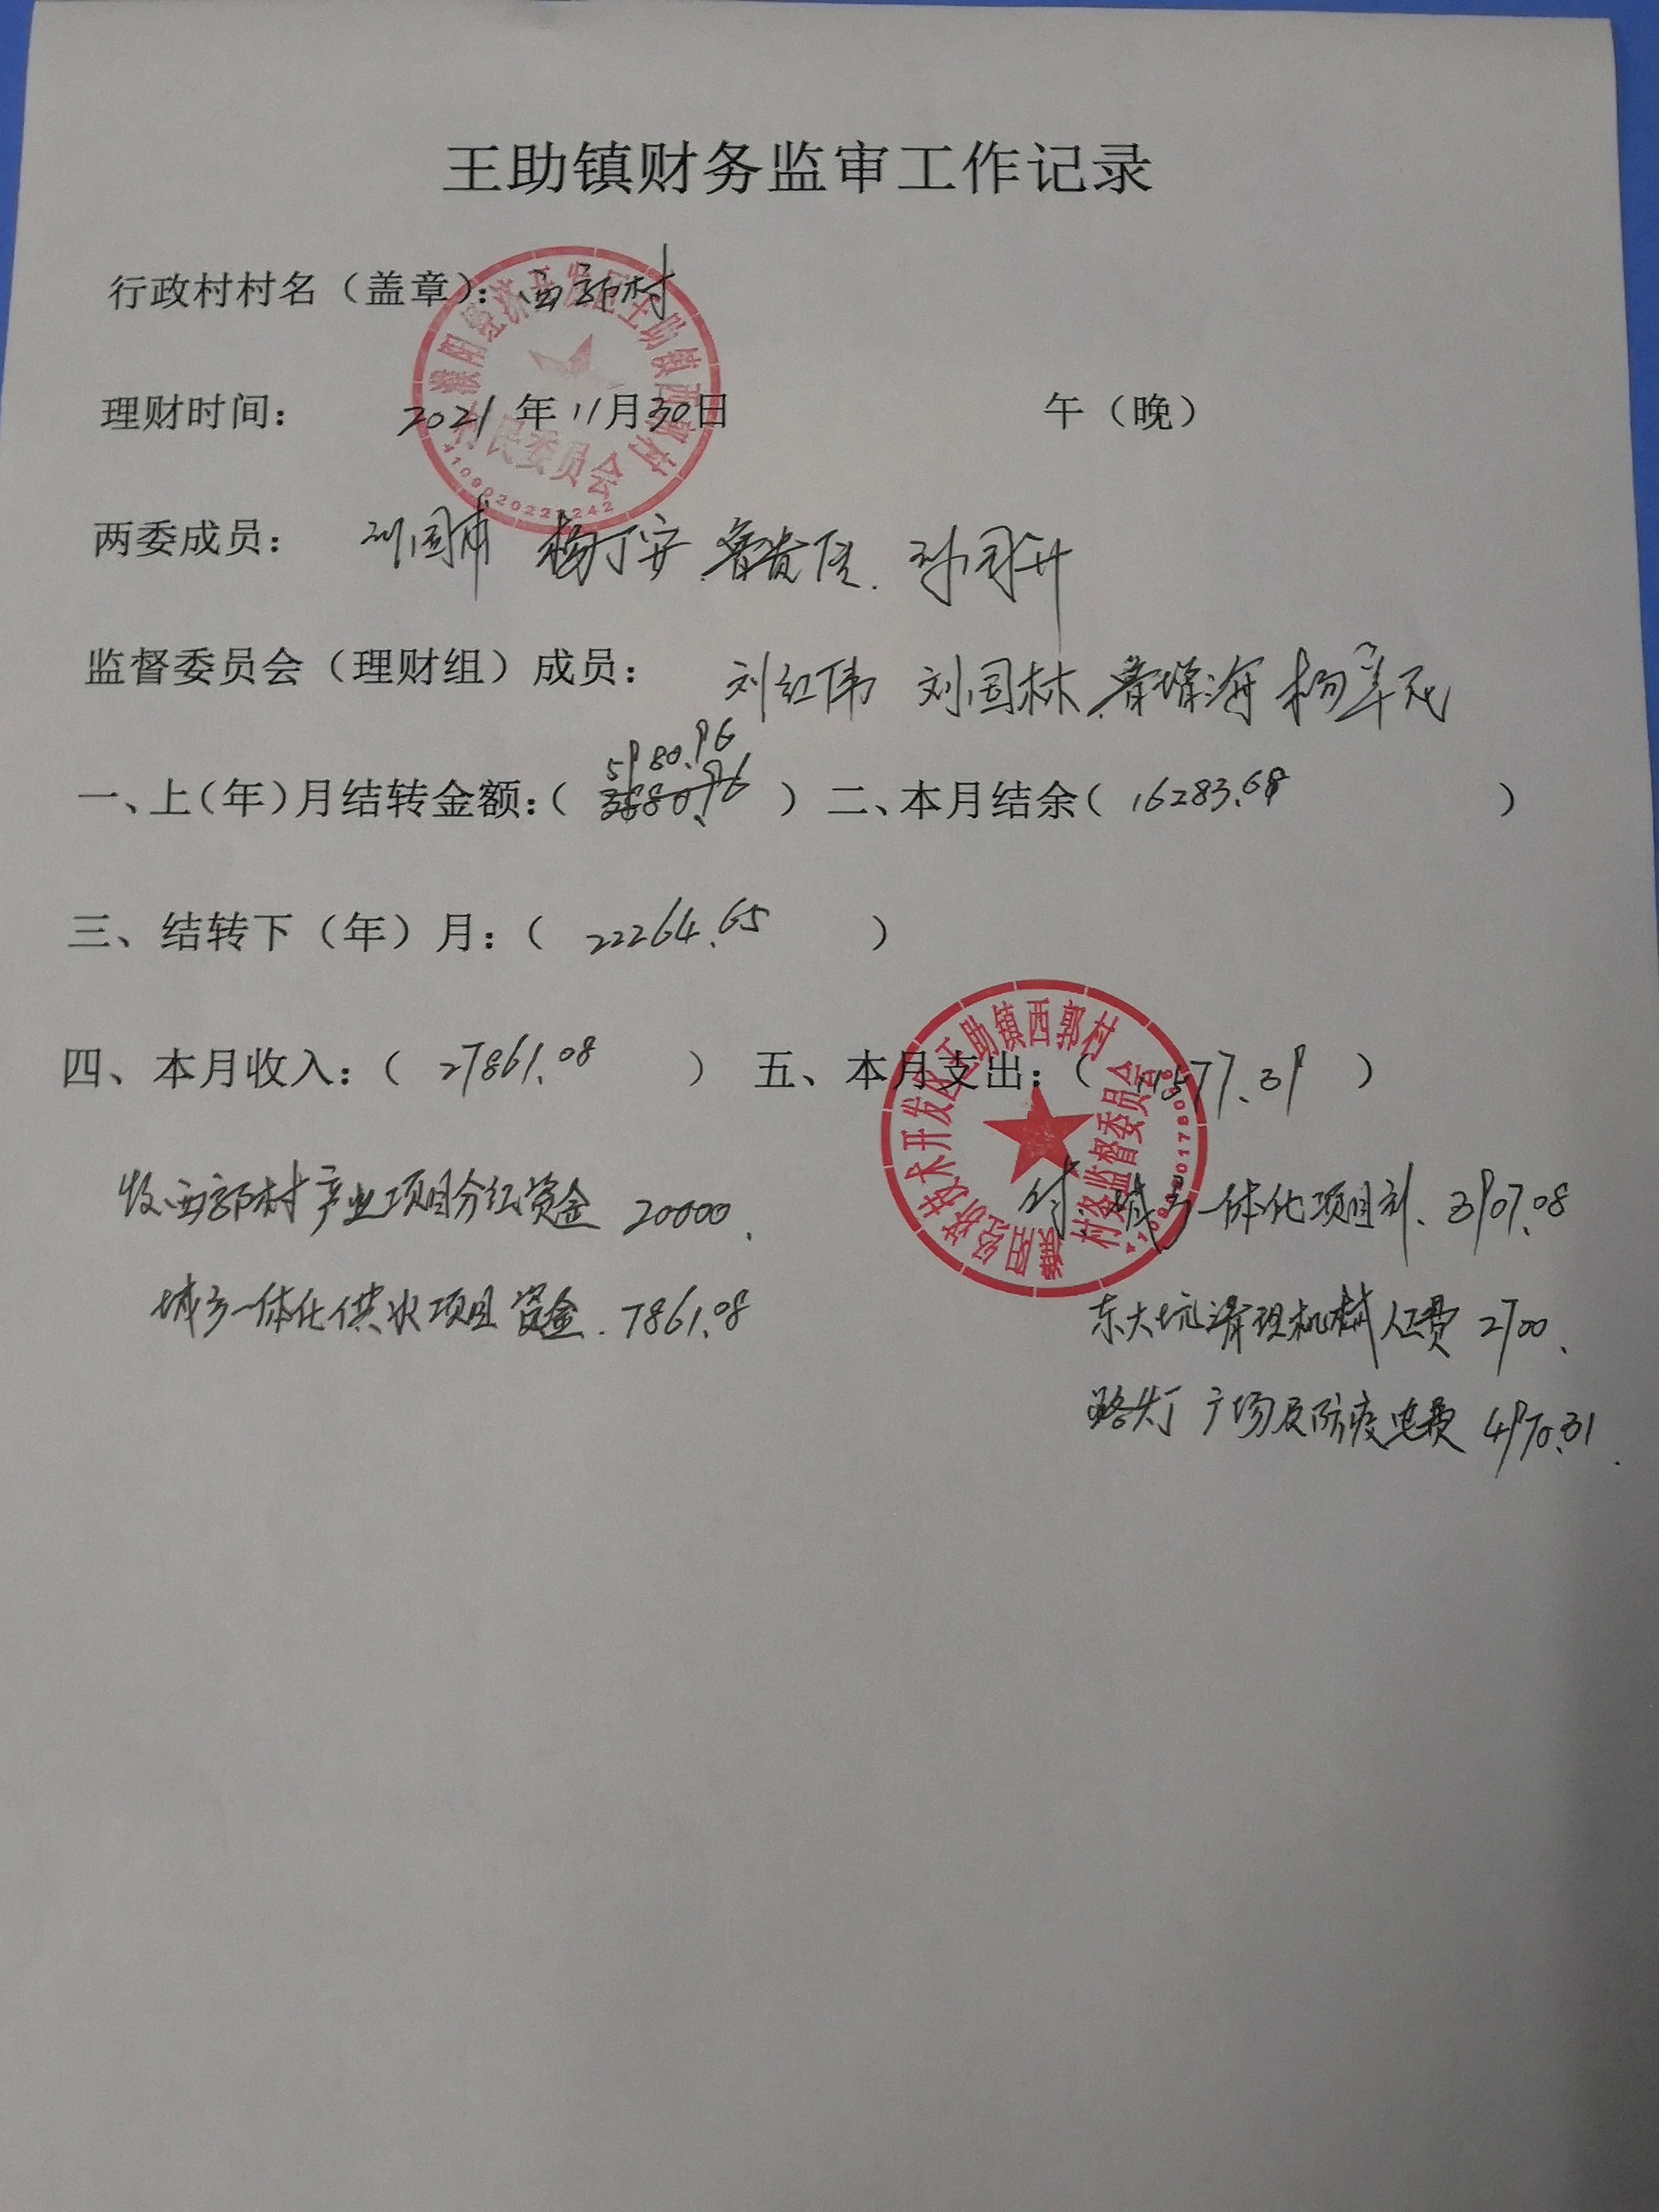 王助镇财务监审工作记录
行政村村名（盖章）：西郭村
理财时间： 2021年11月30日 午（晚）
两委成员： 刘国甫 杨丁安 鲁贵信 孙国升
监督委员会（理财组）成员： 刘红伟 刘国林 杨
一、上（年）月结转金额：（ 5980.96 ）二、本月结余（ 16283.69 ）
三、结转下（年）月：（ 22264.65 ）
四、本月收入：（ 27861.08 ） 五、本月支出：（ 11577.39 ）
收西郭村产业项目分红资金 20000.
付 城乡一体化项目 3907.08
城乡一体化供水项目资金. 7861.08
东大坑清理机械人工费 2700.
路灯广场及防疫电费 4970.31.
濮阳经济开发区王助镇西郭村
村民委员会
濮阳经济技术开发区王助镇西郭村
村务监督委员会